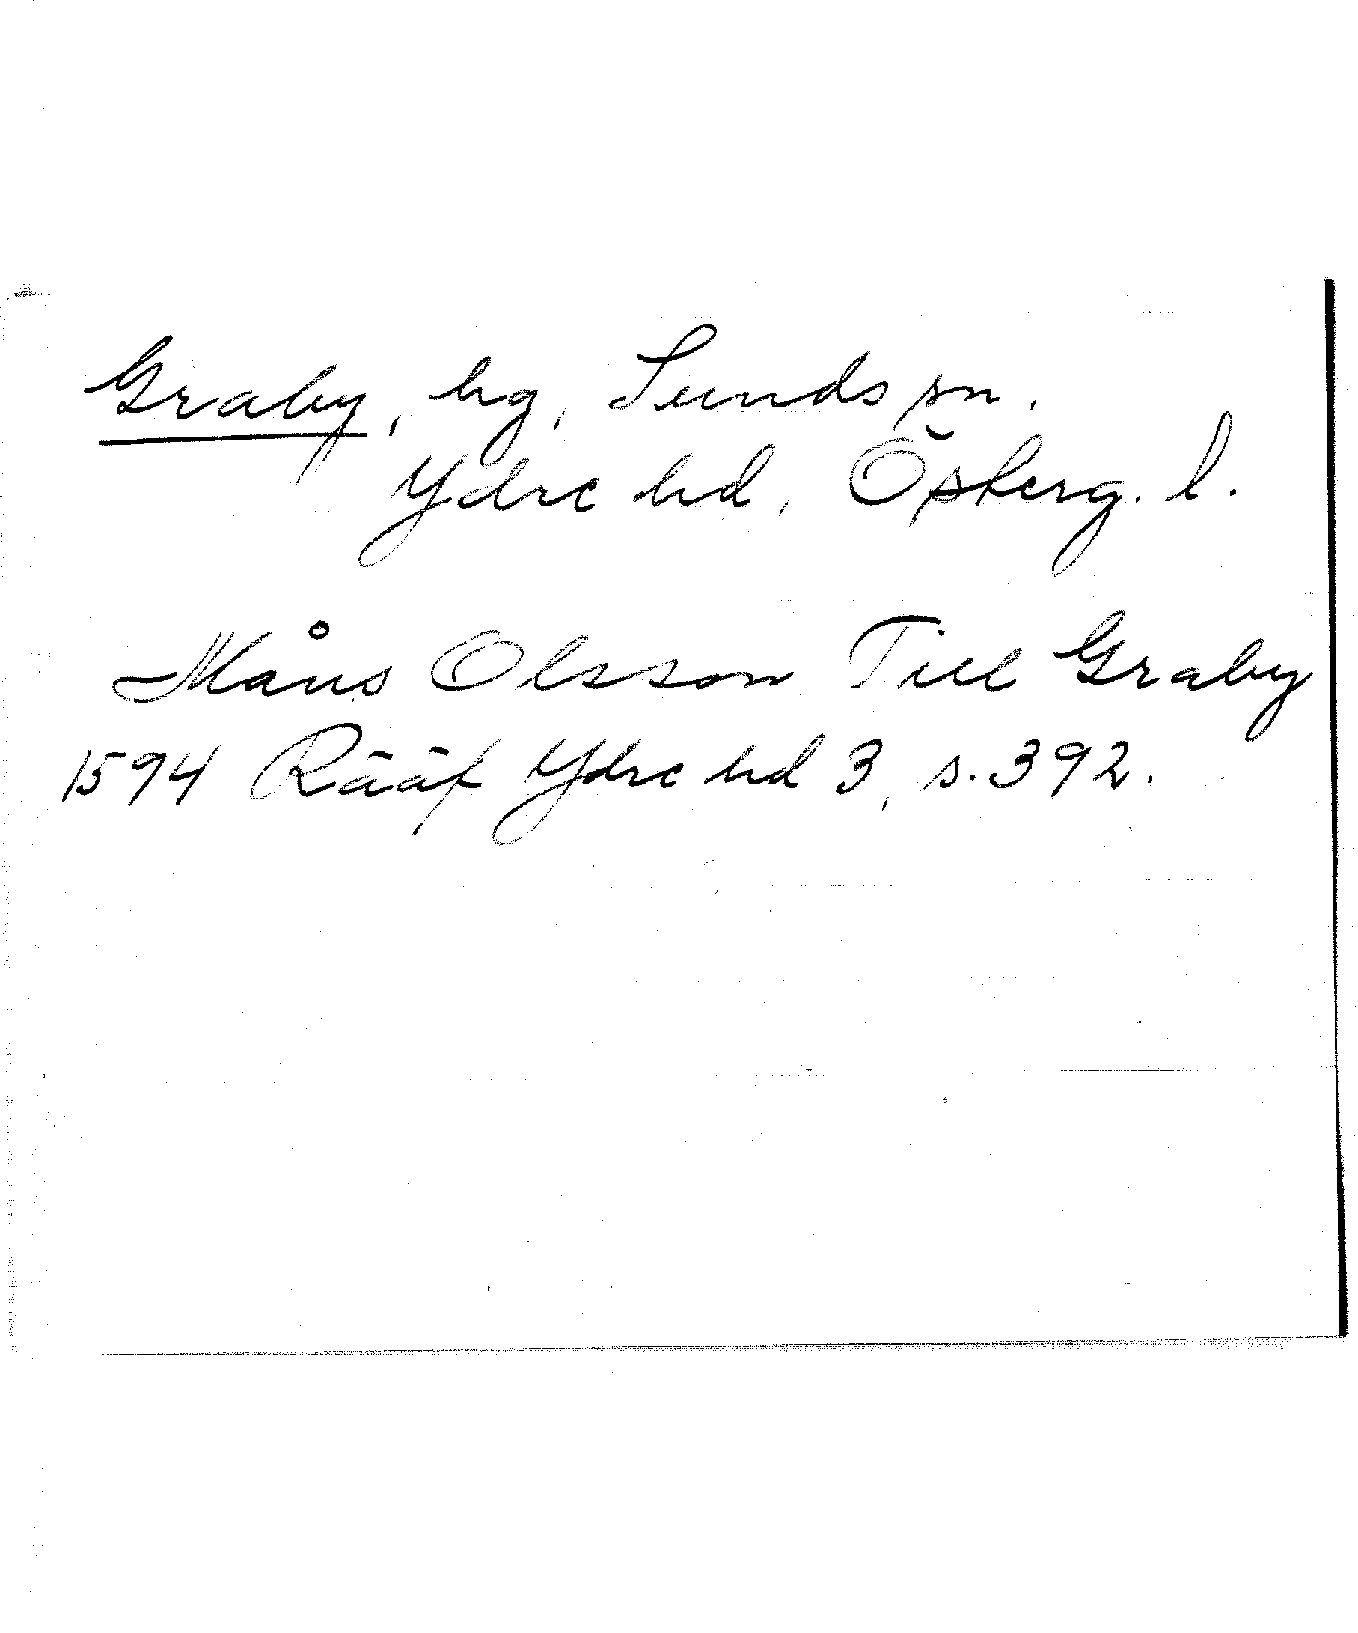 Graby, hg, Sunds sn.
Ydre hd, Österg. l.
Måns Olsson Till Graby
1594 Rääf Ydre hd 3, s. 392.